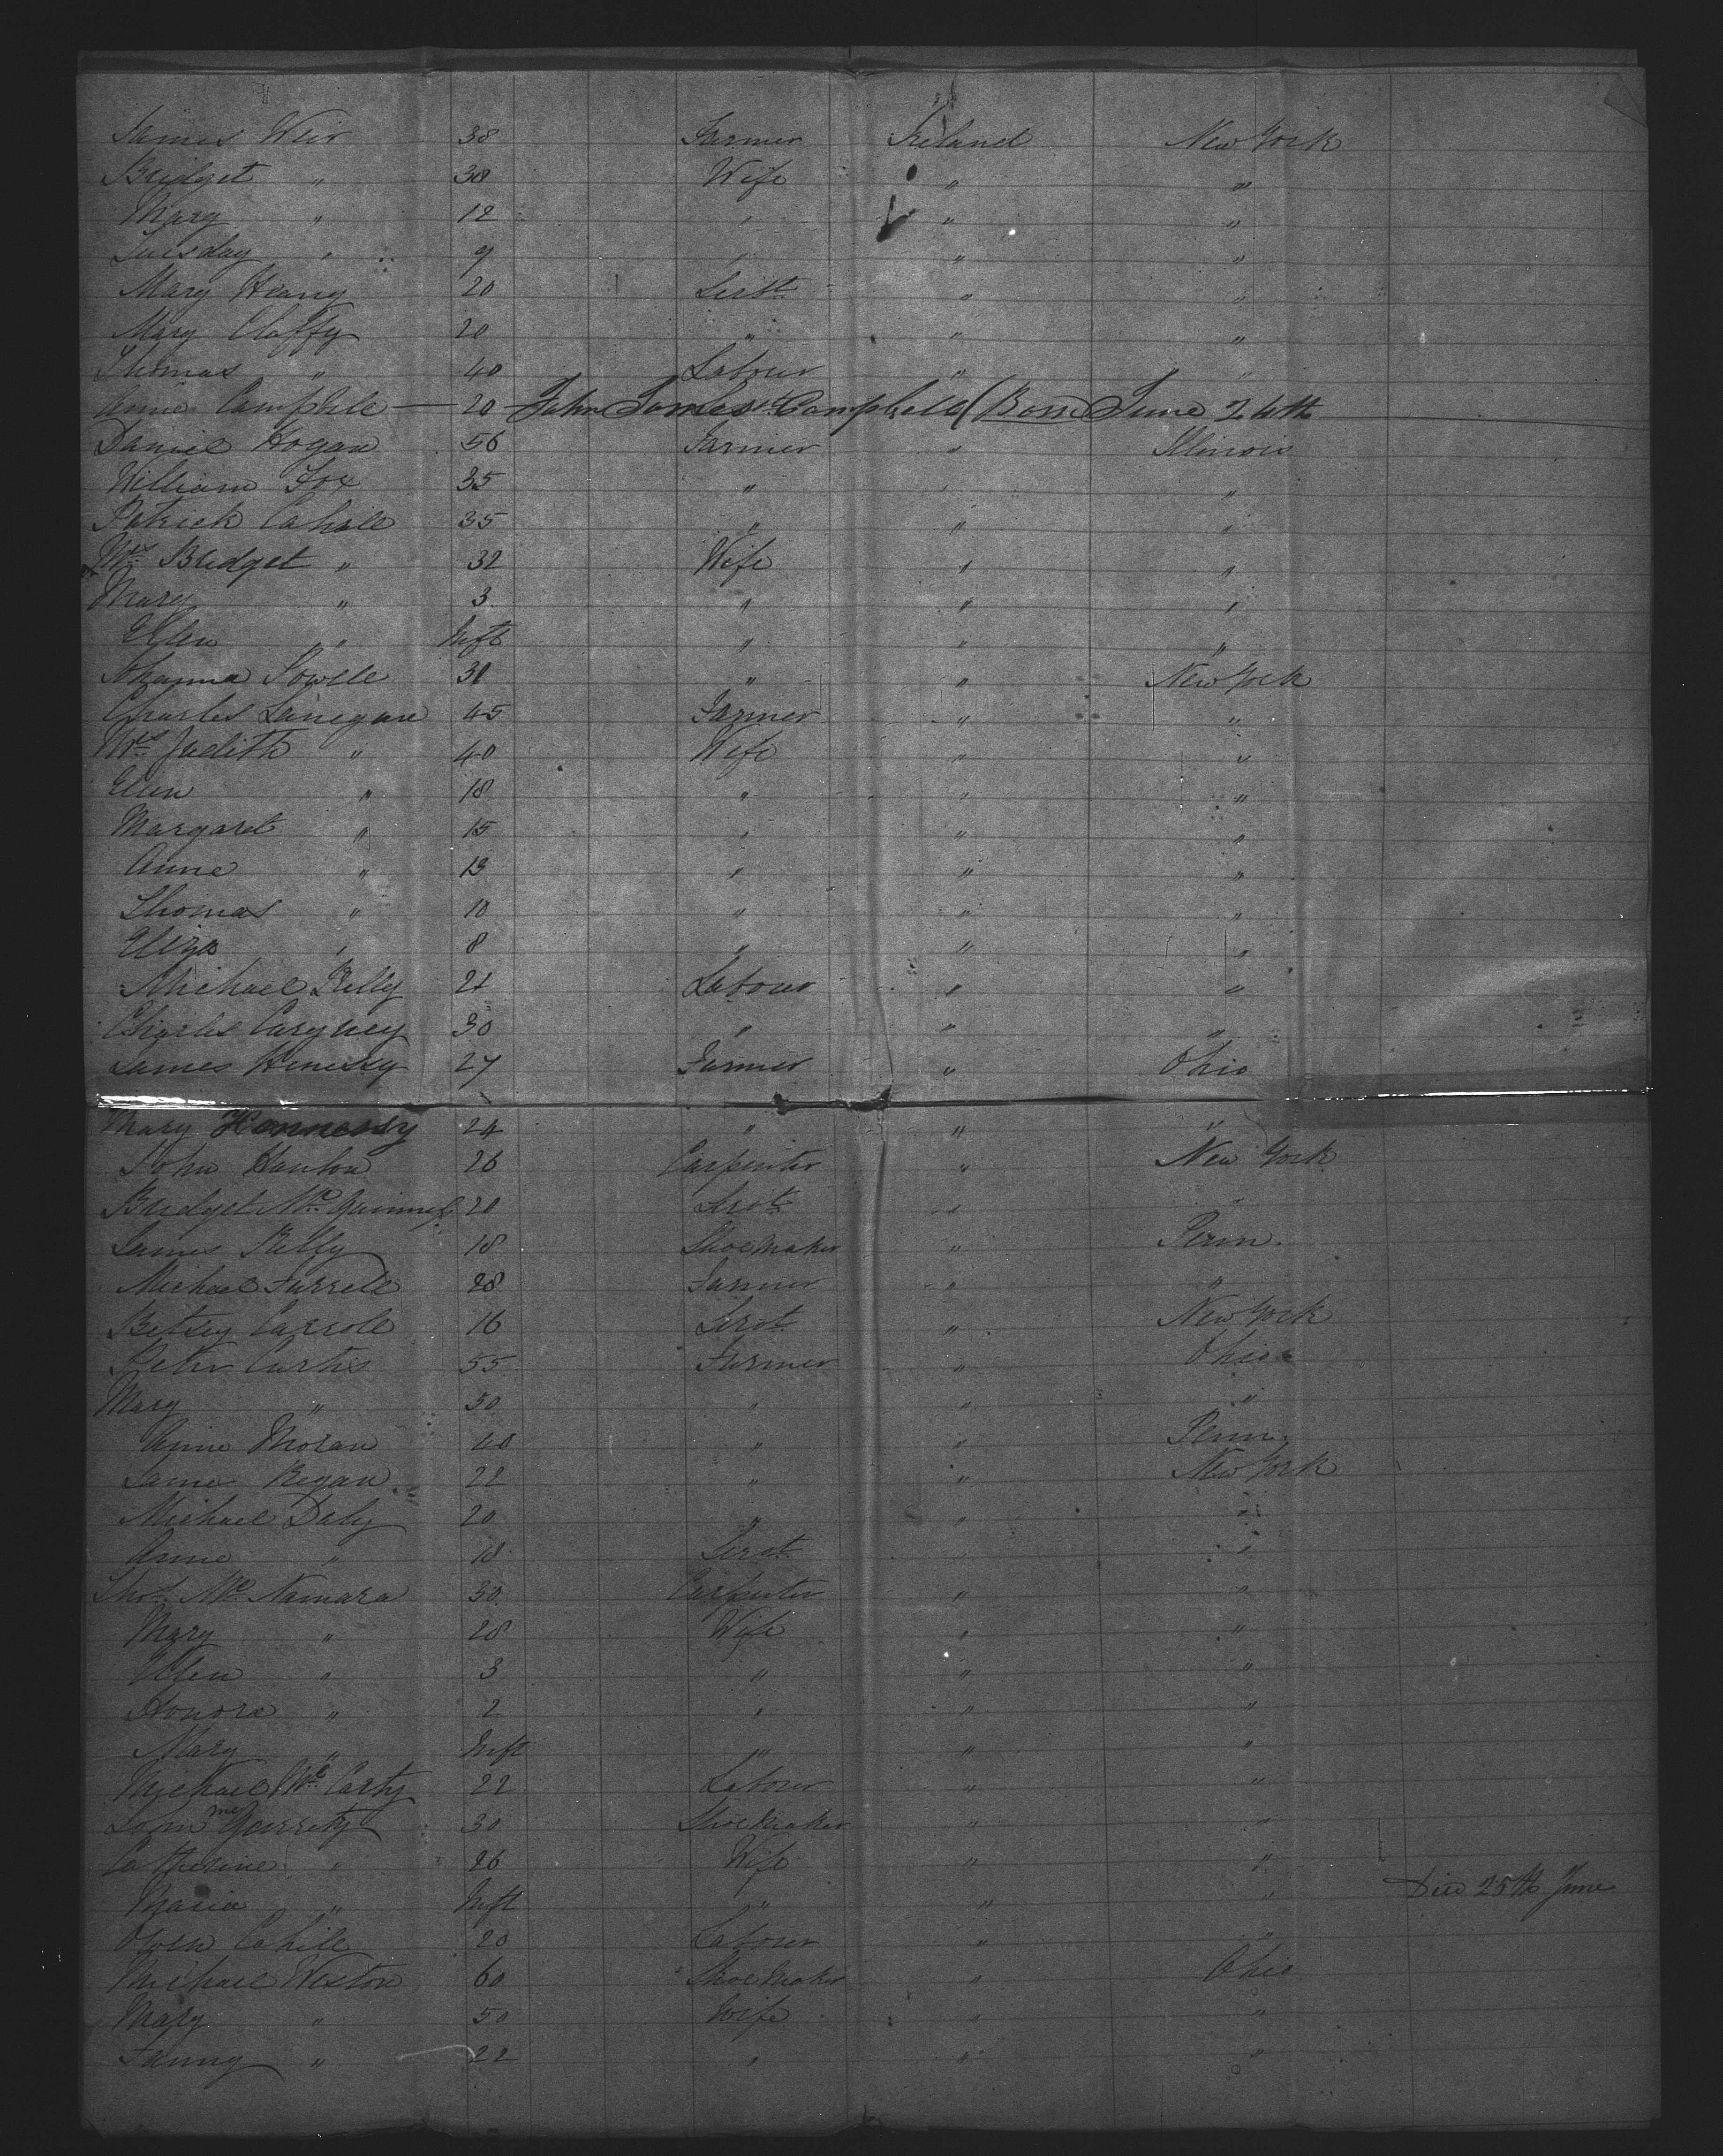 James Weir 38 Farmer Ireland New York
Bridget " 38 Wife " "
Mary " 12 " " "
9 " " "
Mary 20 Servt " "
Mary Claffy 20 " " "
Thomas " 40 Labour " "
Anne Campbile — 20 John James Campbell (Born June 24th
Daniel Hogan 56 Farmer " Illinois
William Fox 35 " " "
Patrick Cahill 35 " " "
Mrs Bridget " 32 Wife " "
Mary " 3 " " "
Ellen " Inft " " "
Johanna Powell 30 " " New York
Charles Lanegan 45 Farmer " "
Mrs Judith " 40 Wife " "
Ellen " 18 " " "
Margaret " 15 " " "
Anne " 13 " " "
Thomas " 10 " " "
Eliza " 8 " " "
Michael Kelly 21 Labour " "
Charles 30 " " "
James Henessy 27 Farmer " Ohio
Mary Hennessy 24 " " "
John Hanlon 26 Carpenter " New York
Bridget Mc Guinness 20 Servt " "
James Kelly 18 Shoe Maker " Penn.
Michael Farrell 28 Farmer " "
Betsey Carroll 16 Servt " New York
Peter Curtis 55 Farmer " Ohio
Mary " 50 " " "
Anne Moran 40 " " Penn.
James Regan 22 " " New York
Michael Daly 20 " " "
Anne " 18 Servt " "
Thos Mc Namara 30 Carpenter " "
Mary " 28 Wife " "
Ellen " 3 " " "
Honora " 2 " " "
Mary " Inft " " "
Michael Mc Carty 22 Labour " "
John Mc Garrety 30 Shoe Maker " "
Catherine " 26 Wife " "
Maria " Inft " " " Died 25th June
Owen Cahill 20 Labour " "
Michael Weston 60 Shoe Maker " Ohio
Mary " 50 Wife " "
Fanny " 22 " " "